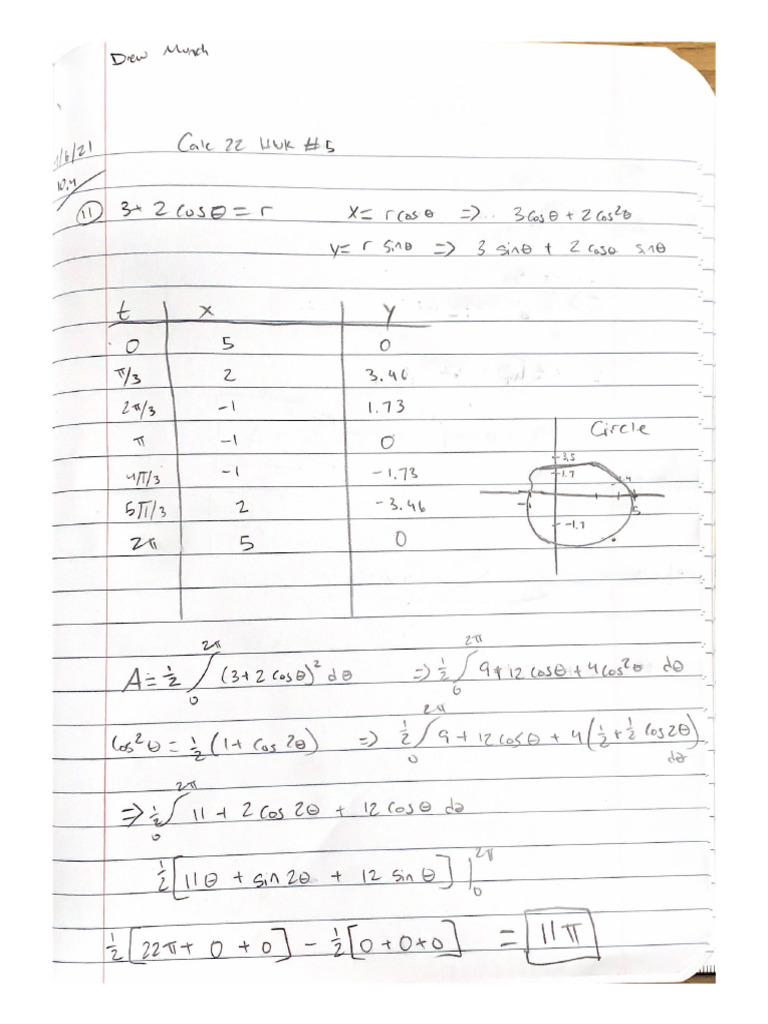 Drew
Calc 22 HWK #5
/6/21
10.4
11 3+ 2 cosθ = r x= r cosθ => 3cosθ + 2cos²θ
y= r sinθ => 3 sinθ + 2 cosθ sinθ
t x y
0 5 0
π/3 2 3.46
2π/3 -1 1.73
π -1 0
Circle
4π/3 -1 -1.73
3.5
1.7
5π/3 2 -3.46
-1
5
-1.7
2π 5 0
A = ½ ∫₀^2π (3+2cosθ)² dθ => ½ ∫₀^2π 9+12cosθ+4cos²θ dθ
cos²θ = ½(1+ cos2θ) => ½ ∫₀^2π 9 + 12cosθ + 4(½+½ cos2θ) dθ
=> ½ ∫₀^2π 11 + 2 cos 2θ + 12 cosθ dθ
½[11θ + sin2θ + 12 sinθ] |₀^2π
½[22π+ 0 + 0] - ½[0+0+0] = 11π